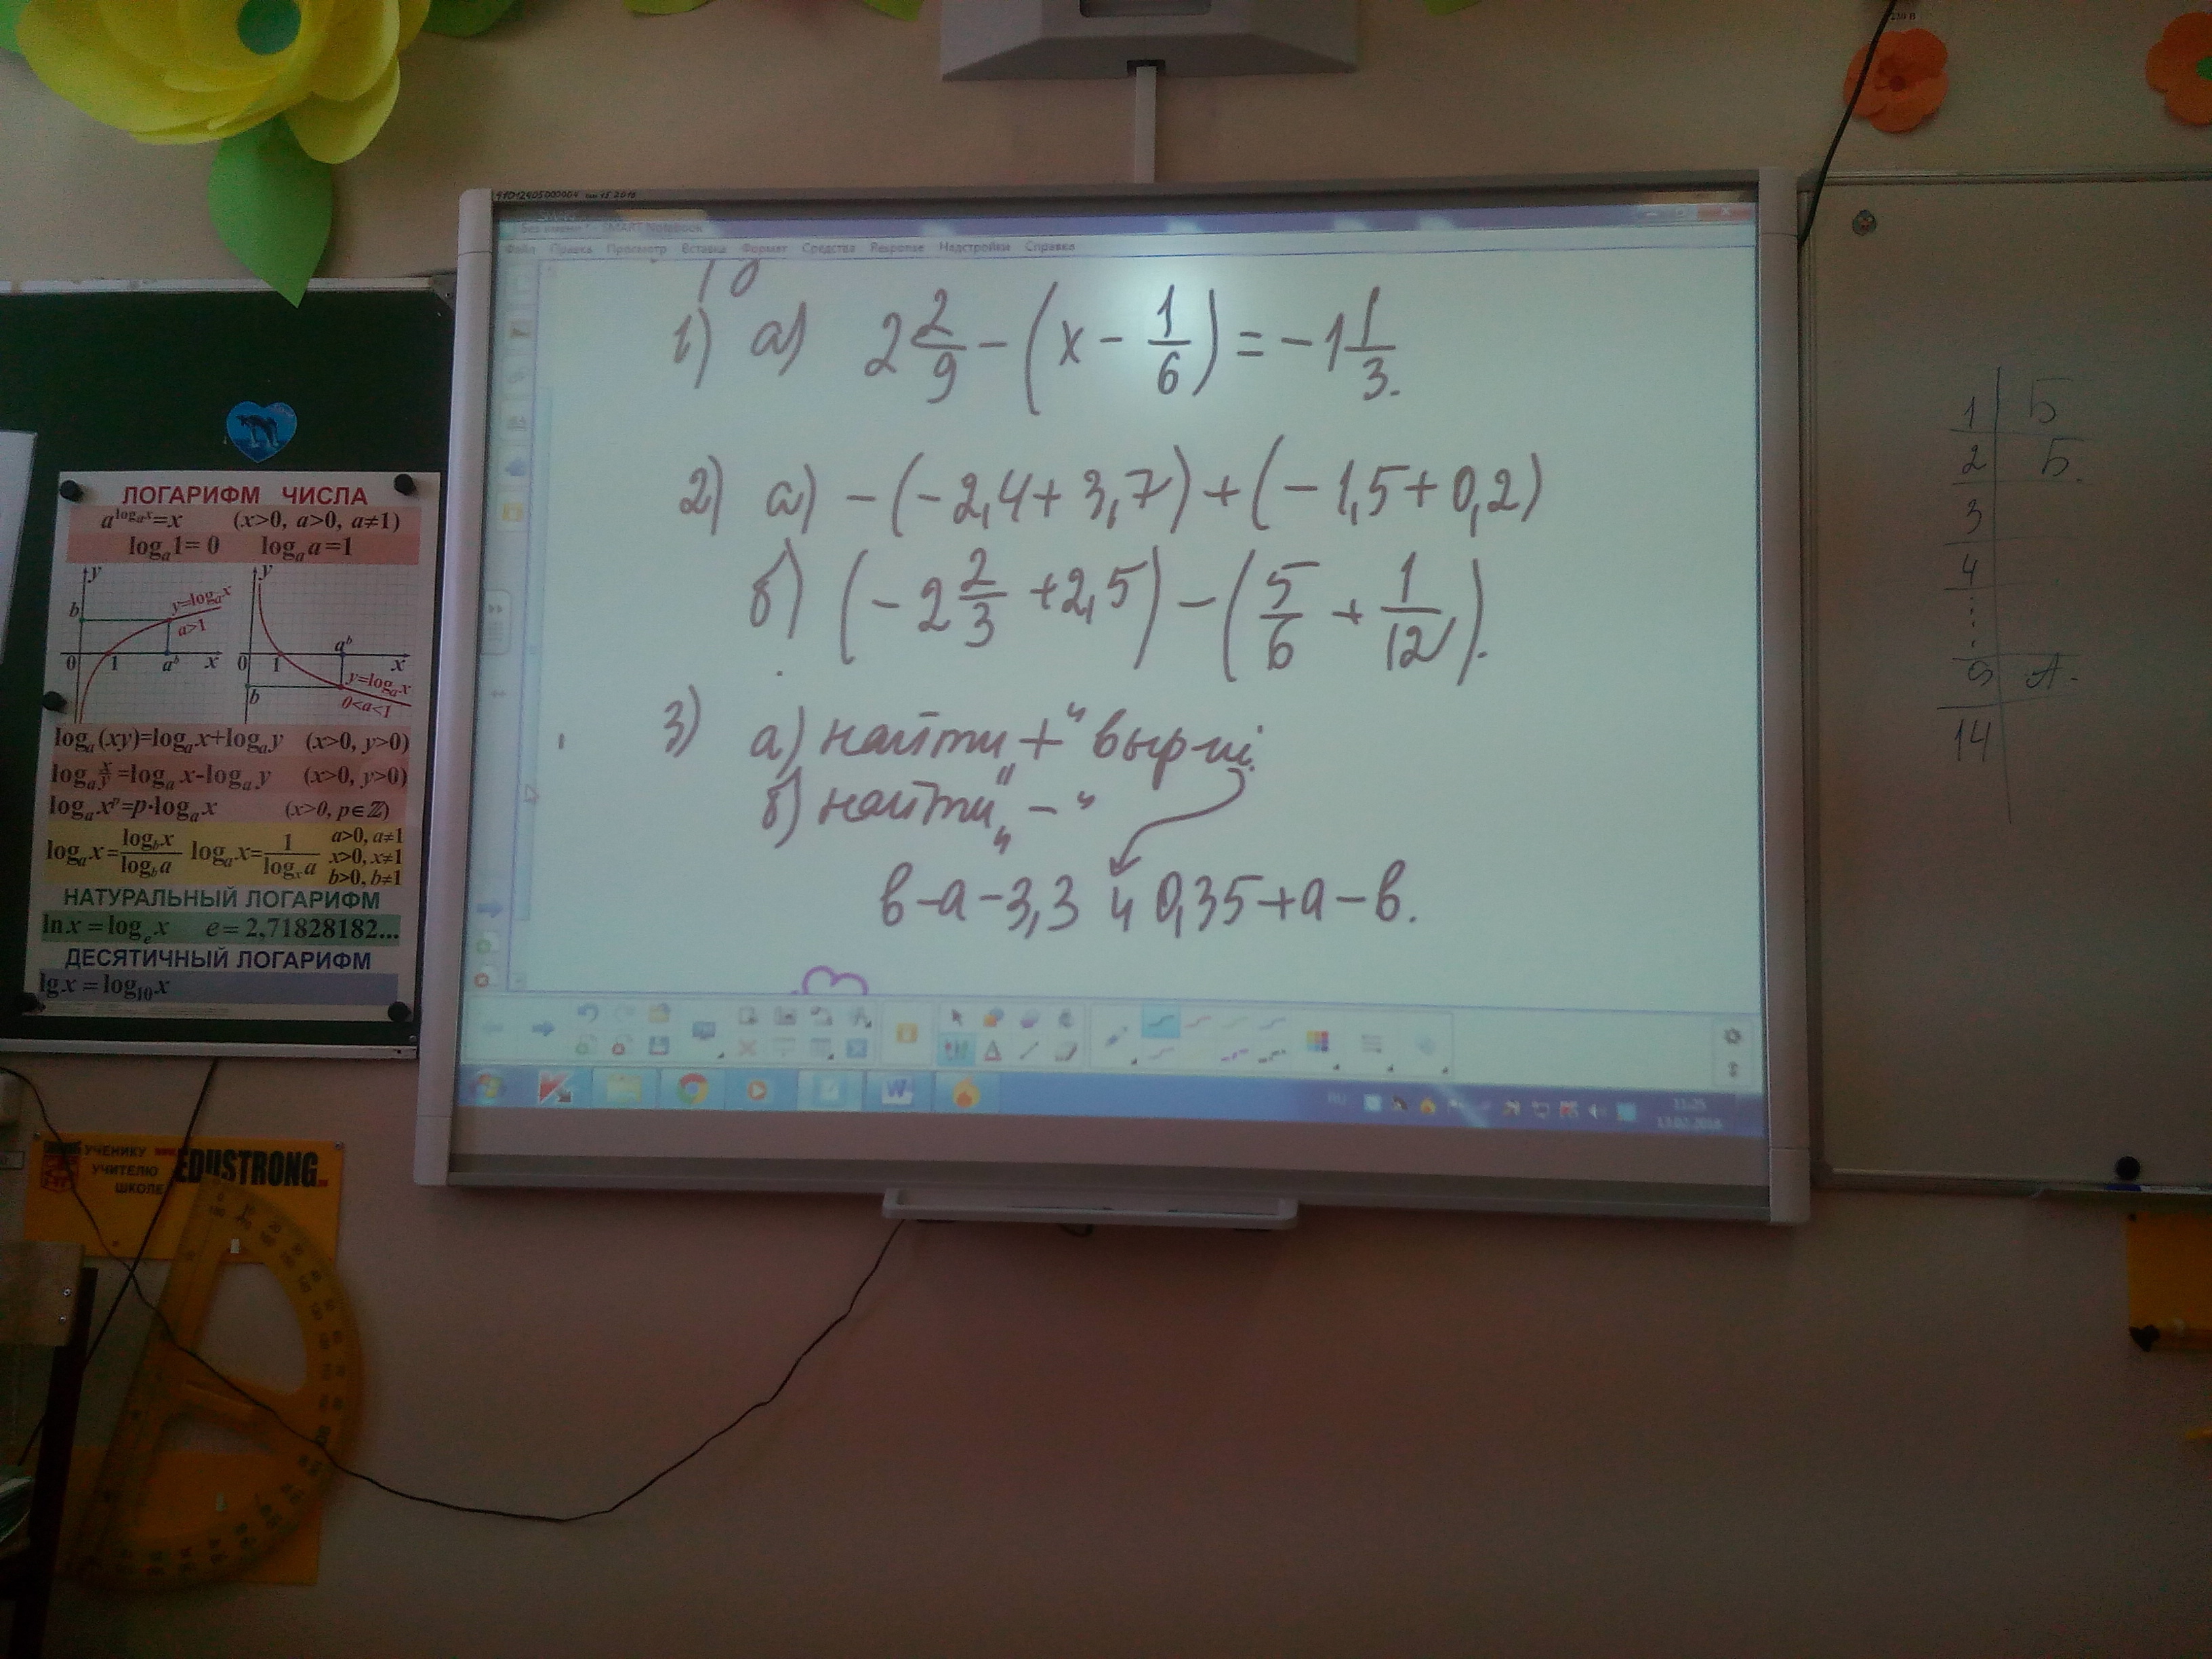 230 В
Без имени * - SMART Notebook
Файл Правка Просмотр Вставка Формат Средства Response Надстройки Справка
1) а) 2 2/9 - (x - 1/6) = -1 1/3.
2) а) -(-2,4+3,7)+(-1,5+0,2)
б) (-2 2/3 +2,5) - (5/6 + 1/12).
3) а) найти „+“ выр-й.
б) найти „-“
в-а-3,3 и 0,35+а-в.
11:25
ЛОГАРИФМ ЧИСЛА
a^(log_a x)=x (x>0, a>0, a≠1)
log_a 1= 0 log_a a=1
y y
b y=log_a x
a>1 a^b
0 1 a^b x 0 1 x
b y=log_a x
0<a<1
log_a (xy)=log_a x+log_a y (x>0, y>0)
log_a x/y =log_a x-log_a y (x>0, y>0)
log_a x^p=p·log_a x (x>0, p∈ℤ)
log_a x= log_b x / log_b a log_a x= 1 / log_x a a>0, a≠1
x>0, x≠1
b>0, b≠1
НАТУРАЛЬНЫЙ ЛОГАРИФМ
ln x = log_e x e = 2,71828182...
ДЕСЯТИЧНЫЙ ЛОГАРИФМ
lg x = log_10 x
УЧЕНИКУ
УЧИТЕЛЮ
ШКОЛЕ
EDUSTRONG
1 Б
2 Б.
3
4
А.
14